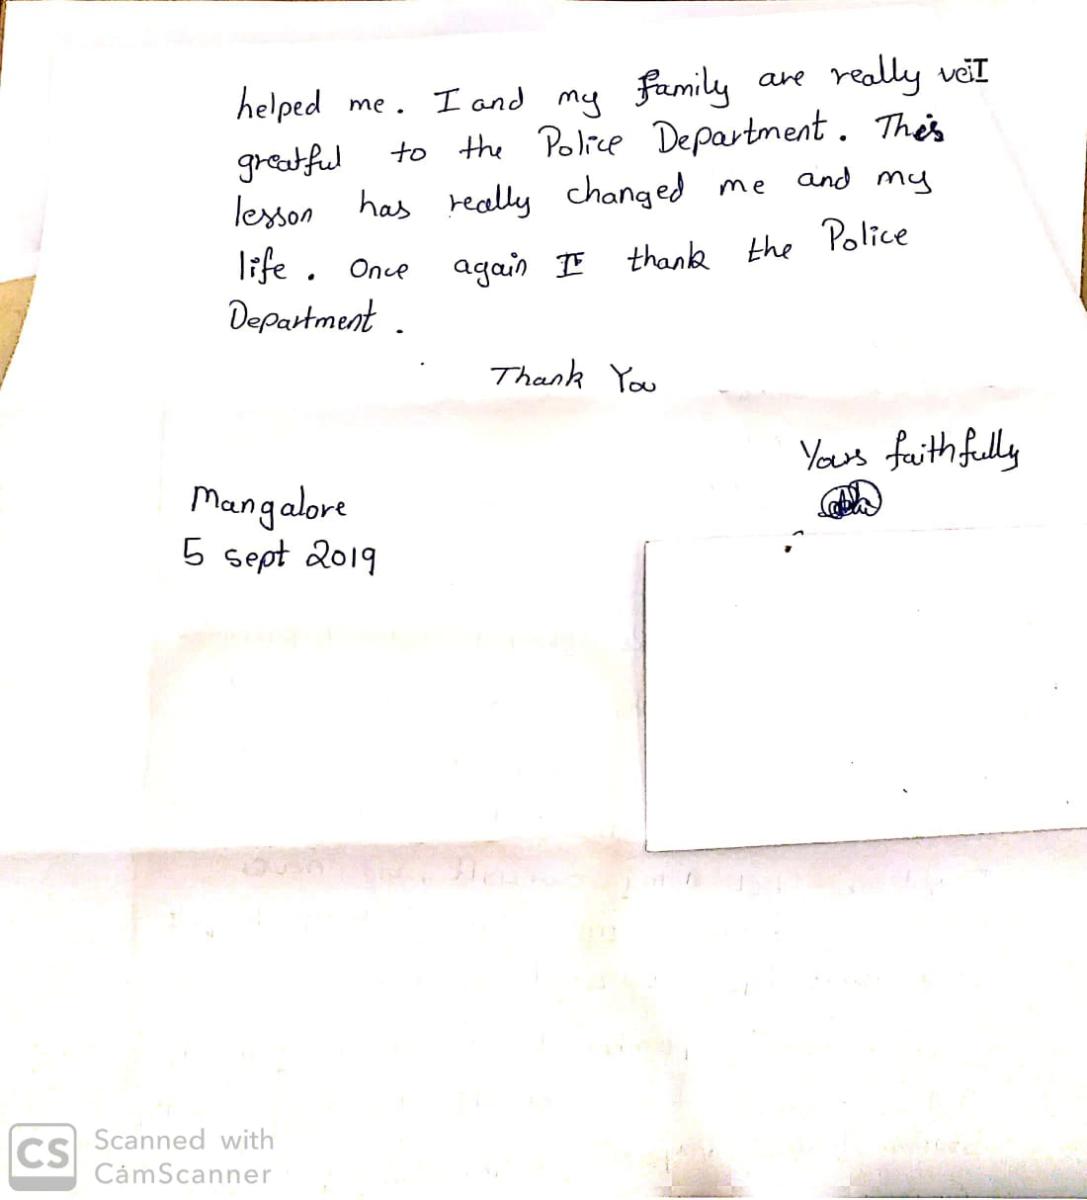 helped me. I and my family are really
greatful to the Police Department. This
lesson has really changed me and my
life. Once again I thank the Police
Department.
Thank You
Yours faithfully
Mangalore
5 sept 2019
CS Scanned with
CamScanner